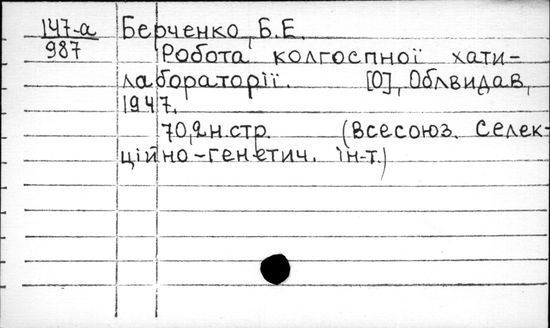 147-а
987
Берченко, Б.Е.
Робота колгоспної хати-
лабораторії. [О], Облвидав,
1947.
70,2н.стр. (Всесоюз. Селек-
ційно-генетич. ін-т.)